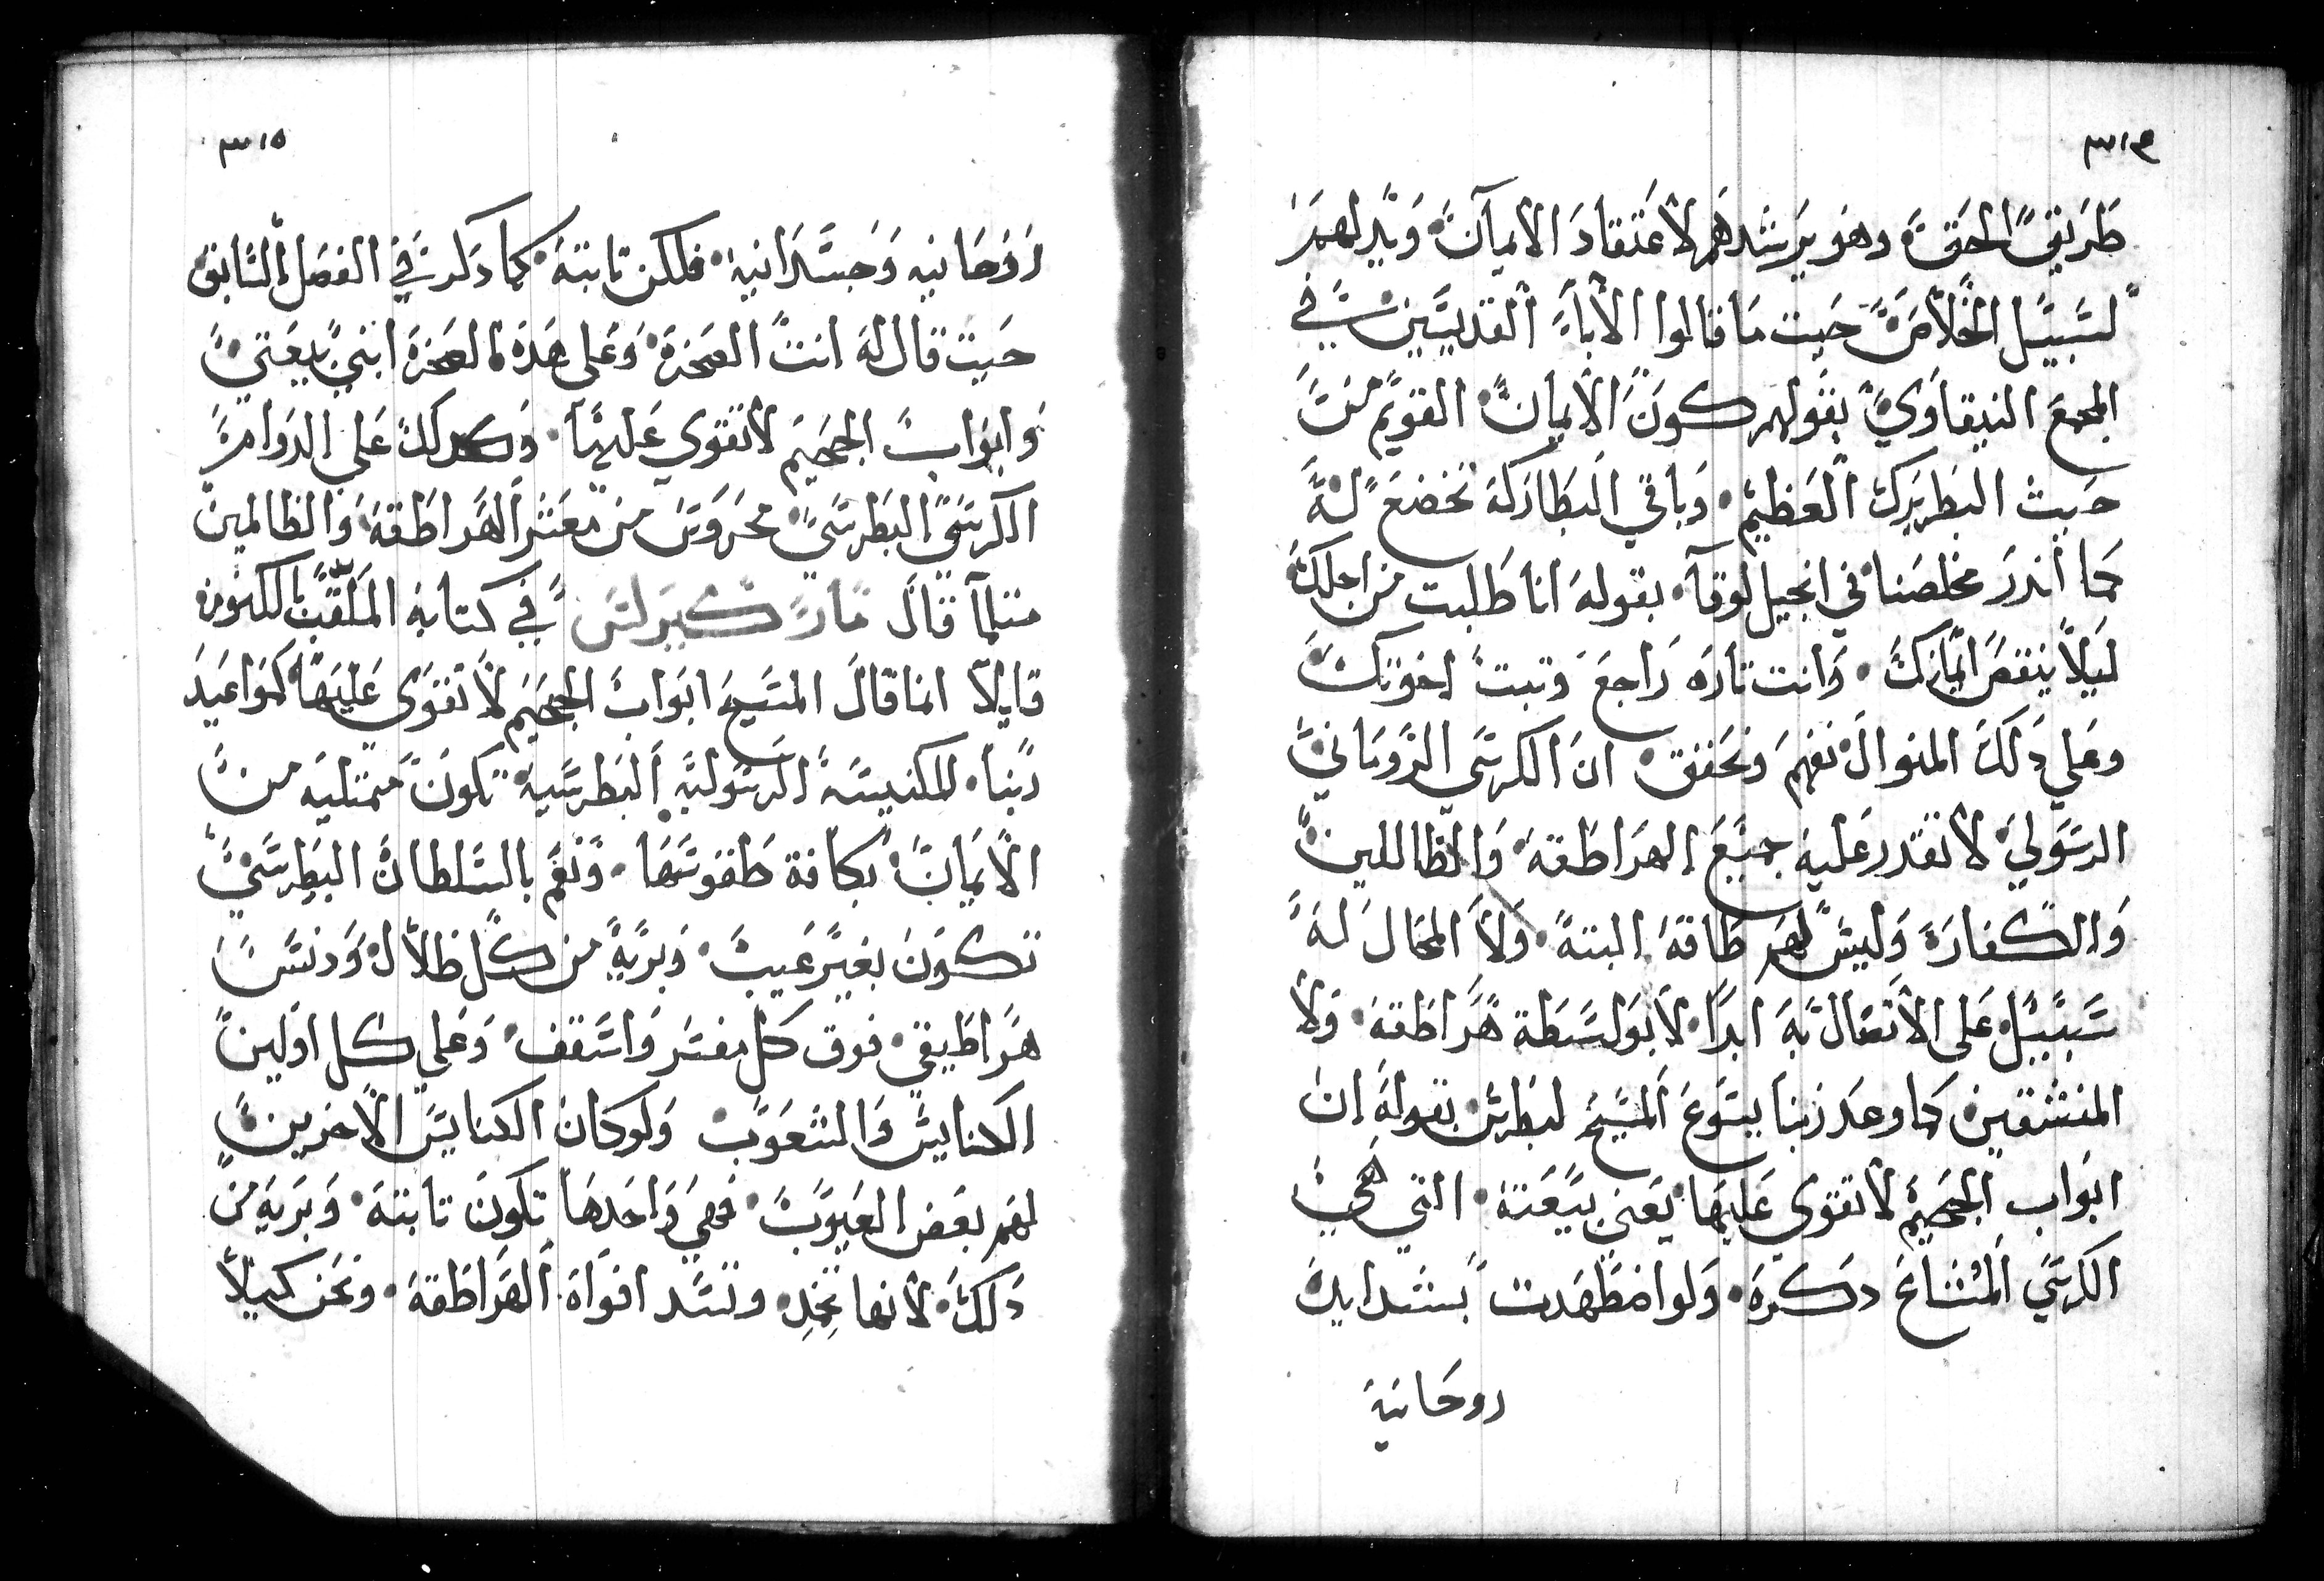 ٣١٤
طريق الحق وهو يرشدهم لاعتقاد الايمان ويدلهم
لسبيل الخلاص حيت ما قالوا الاباء القديسين في
المجمع النيقاوي بقولهم كون الايمان القويم من
حيث البطريرك العظيم وباقي البطاركة تخضع له
كما اندر مخلصنا في انجيل لوقا بقوله انا طلبت من اجلك
ليلا ينقص ايمانك وانت تاره راجع وتبت اخوتك
وعلي دلك المنوال نفهم ونحقق ان الكرسي الروماني
الرسولي لا تقدر عليه جميع الهراطقة والظالمين
والكفارة وليس لهم طاقة البتة ولا المحال له
سبيل على الاتصال به ابدا لا بواسطة هراطقة ولا
المنشقين كما وعد ربنا يسوع المسيح لبطرس بقوله ان
ابواب الجحيم لا تقوى عليها يعني بيعته التي هي
الكرسي المشاع دكره ولو اضطهدت بشدايد
روحانية
٣١٥
روحانيه وجسدانية فلكن تابتة كما دكر في الفصل السابق
حيت قال له انت الصخرة وعلى هده الصخرة ابني بيعتي
وابواب الجحيم لا تقوي عليها وكدلك على الدوام
الكرسي البطرسي محروس من معشر الهراطقة والظالمين
متلما قال مار كيرلس في كتابه الملقب بالكنوز
قايلا انما قال المسيح ابواب الجحيم لا تقوى عليها كمواعيد
ربنا للكنيسة الرسولية البطرسية تكون ممتليه من
الايمان بكافة طقوسها ونعم بالسلطان البطرسي
تكون بغير عيب وبرية من كل ظلال ودنس
هراطيقي فوق كل مفسر واسقف وعلي كل اولين
الكنايس والشعوب ولو كان الكنايس الاخرين
لهم بعض العيوب فهي واحدها تكون تابتة وبرية من
دلك لانها تخد وتسد افواه الهراطقة ونحن كيلا